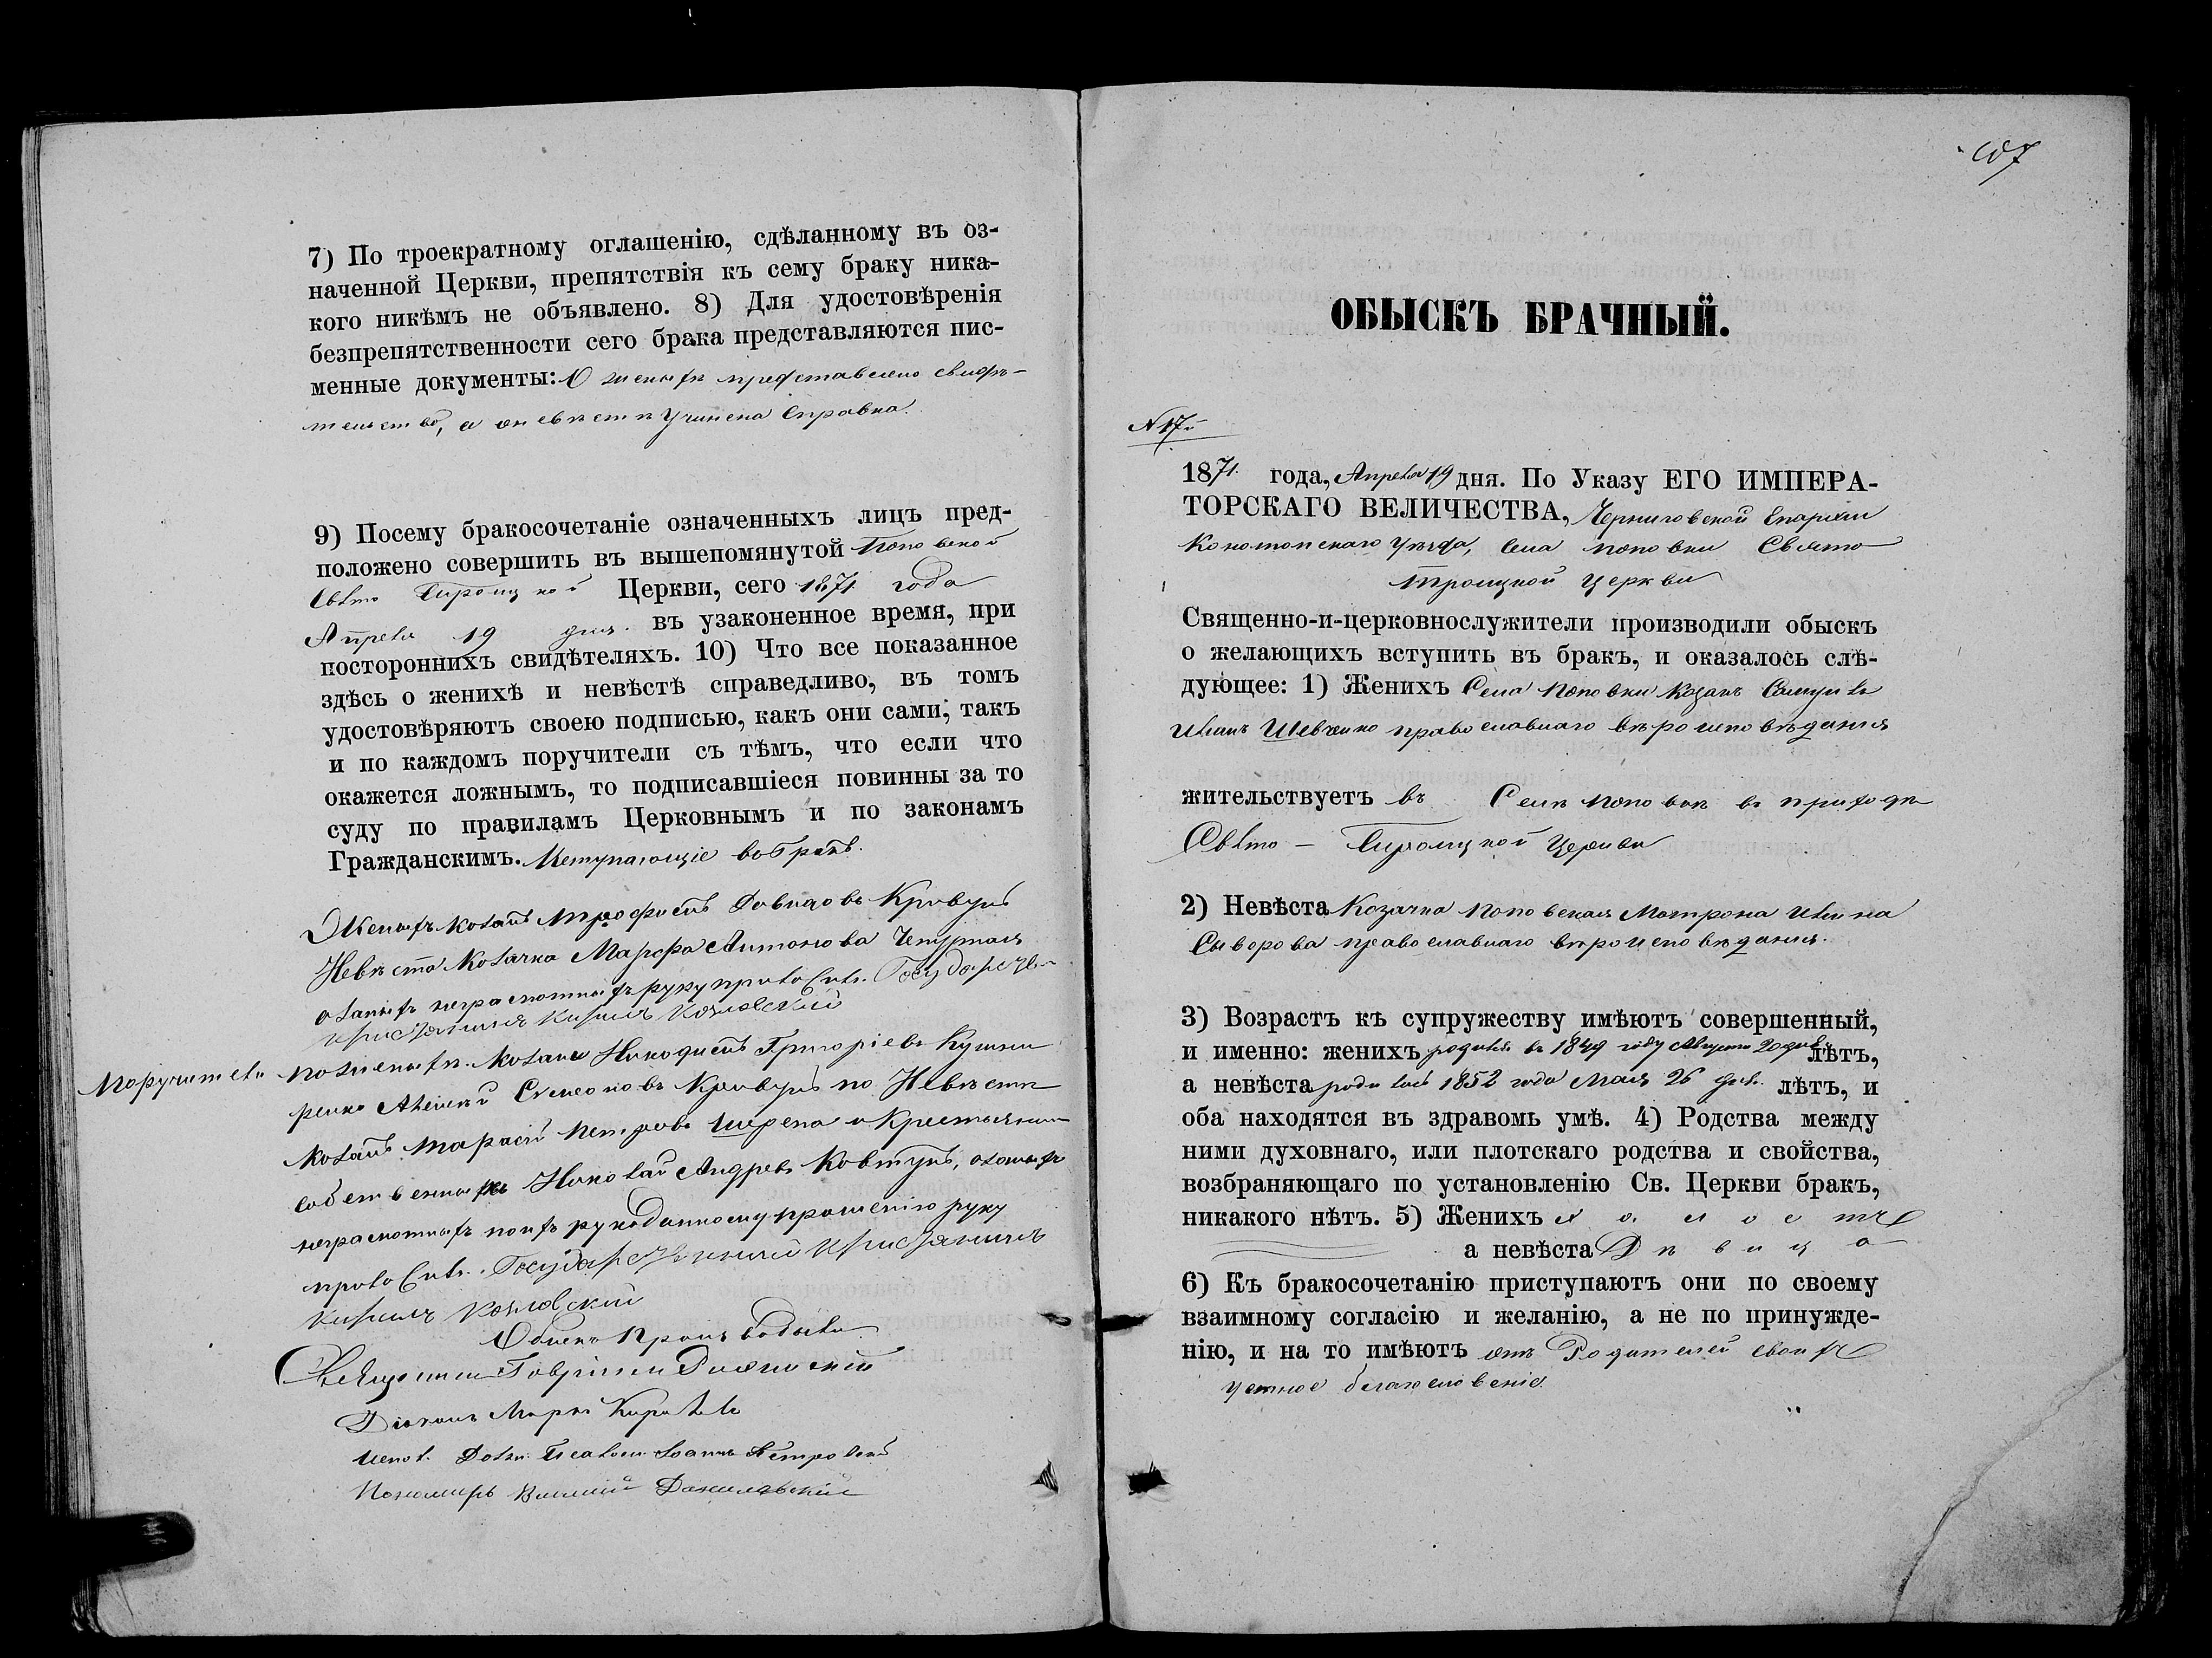 7) По троекратному оглашенію, сдѣланному въ оз-
наченной Церкви, препятствія къ сему браку ника-
кого никѣмъ не объявлено. 8) Для удостовѣренія
безпрепятственности сего брака представляются пис-
менные документы: О женихѣ представлено свидѣ-
тельство, а о невѣстѣ учинена справка.
9) Посему бракосочетаніе означенныхъ лицъ пред-
положено совершить въ вышепомянутой Поповской
Свято Троицкой Церкви, сего 1871 года
Апреля 19 дня. въ узаконенное время, при
постороннихъ свидѣтеляхъ. 10) Что все показанное
здѣсь о женихѣ и невѣстѣ справедливо, въ томъ
удостовѣряютъ своею подписью, какъ они сами, такъ
и по каждомъ поручители съ тѣмъ, что если что
окажется ложнымъ, то подписавшіеся повинны за то
суду по правиламъ Церковнымъ и по законамъ
Гражданскимъ. Вступающіе въ бракъ.
Женихъ козакъ Трофимъ Давидовъ Кровунъ
Невѣста козачка Марфа Антонова
а за нихъ неграмотныхъ руку приложилъ Государствен
крестьянинъ Кирилъ Козловский
Поручители по женихѣ козаки Никодимъ Григоріевъ Кушни
ренко Алексѣй Симеоновъ Кровунъ по Невѣстѣ
козакъ Тарасій Петровъ Шерепа и Крестьянинъ
собственникъ Николай Андреевъ Ковтунъ, а за нихъ
неграмотныхъ по ихъ рукоданному прошенію руку
приложилъ Государственный крестьянинъ
Кирилъ Козловский
Обыскъ производили
Священникъ Гавріилъ
Діаконъ Маркъ
Испол. Должн. Псалом. Іоаннъ Петровскій
Пономарь Василій Данилевскій
107
ОБЫСКЪ БРАЧНЫЙ.
N 17й
1871 года, Апреля 19 дня. По Указу ЕГО ИМПЕРА-
ТОРСКАГО ВЕЛИЧЕСТВА, Черниговской Епархіи
Конотопскаго Уѣзда, села Поповки Свято
Троицкой церкви
Священно-и-церковнослужители производили обыскъ
о желающихъ вступить въ бракъ, и оказалось слѣ-
дующее: 1) Женихъ Села Поповки Козакъ Самуилъ
Шевченко православнаго вѣроисповѣданія
жительствуетъ въ Селѣ Поповкѣ въ приходѣ
Свято - Троицкой Церкви
2) Невѣста Козачка Поповская Матрона
Сыворова православнаго вѣроисповѣданія.
3) Возрастъ къ супружеству имѣютъ совершенный,
и именно: женихъ родился въ 1849 году Августа 20 дня лѣтъ,
а невѣста родилась 1852 года Мая 26 дня. лѣтъ, и
оба находятся въ здравомь умѣ. 4) Родства между
ними духовнаго, или плотскаго родства и свойства,
возбраняющаго по установленію Св. Церкви бракъ,
никакого нѣтъ. 5) Женихъ холостъ
а невѣста Дѣвица
6) Къ бракосочетанію приступаютъ они по своему
взаимному согласію и желанію, а не по принужде-
нію, и на то имѣютъ отъ Родителей своихъ
устное благословеніе.